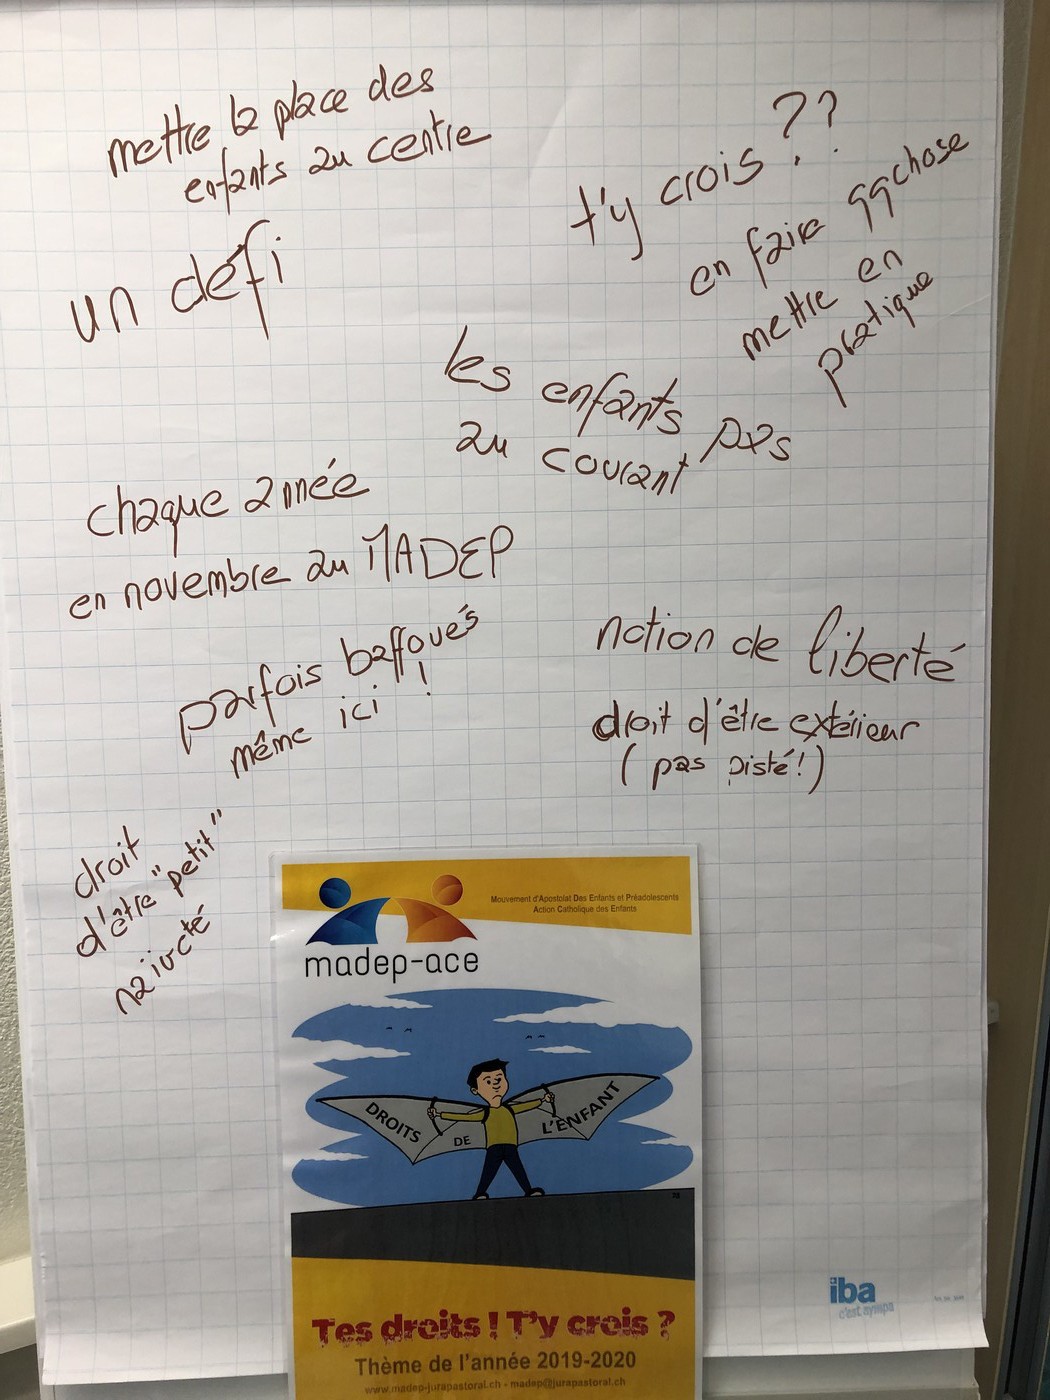 mettre la place des
enfants au centre
t'y crois ??
en faire qqchose
mettre en
pratique
un défi
les enfants
au courant pas
chaque année
en novembre au MADEP
parfois baffoués
même ici !
notion de liberté
droit d'être extérieur
(pas pisté!)
droit
d'être "petit"
naïveté
Mouvement d'Apostolat Des Enfants et Préadolescents
Action Catholique des Enfants
madep-ace
DROITS DE L'ENFANT
Tes droits ! T'y crois ?
Thème de l'année 2019-2020
www.madep-jurapastoral.ch - madep@jurapastoral.ch
iba
c'est sympa